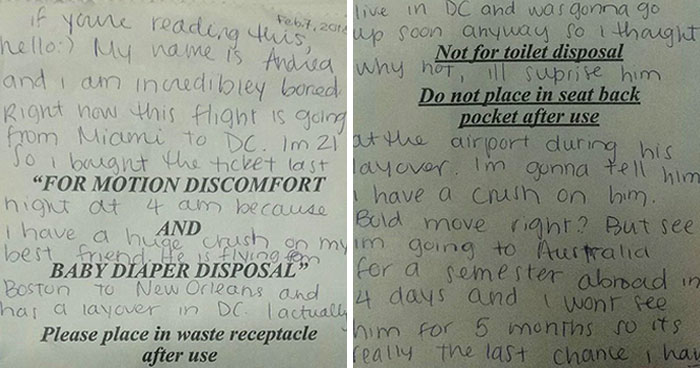 if youre reading this, Feb.7, 201
hello:) My name is Andrea
and i am incredibley bored
Right now this flight is going
from Miami to DC. Im 21
So i bought the ticket last
"FOR MOTION DISCOMFORT
night at 4 am because
AND
i have a huge crush on my
best friend. He is flying from
BABY DIAPER DISPOSAL"
Boston to New Orleans and
has a layover in DC. I actually
Please place in waste receptacle
after use
live in DC and was gonna go
up soon anyway so i thought
Not for toilet disposal
why not, ill suprise him
Do not place in seat back
pocket after use
at the airport during his
layover. Im gunna tell him
i have a crush on him.
Bold move right? But see
im going to Australia
for a semester abroad in
4 days and i wont see
him for 5 months so its
really the last chance i hav